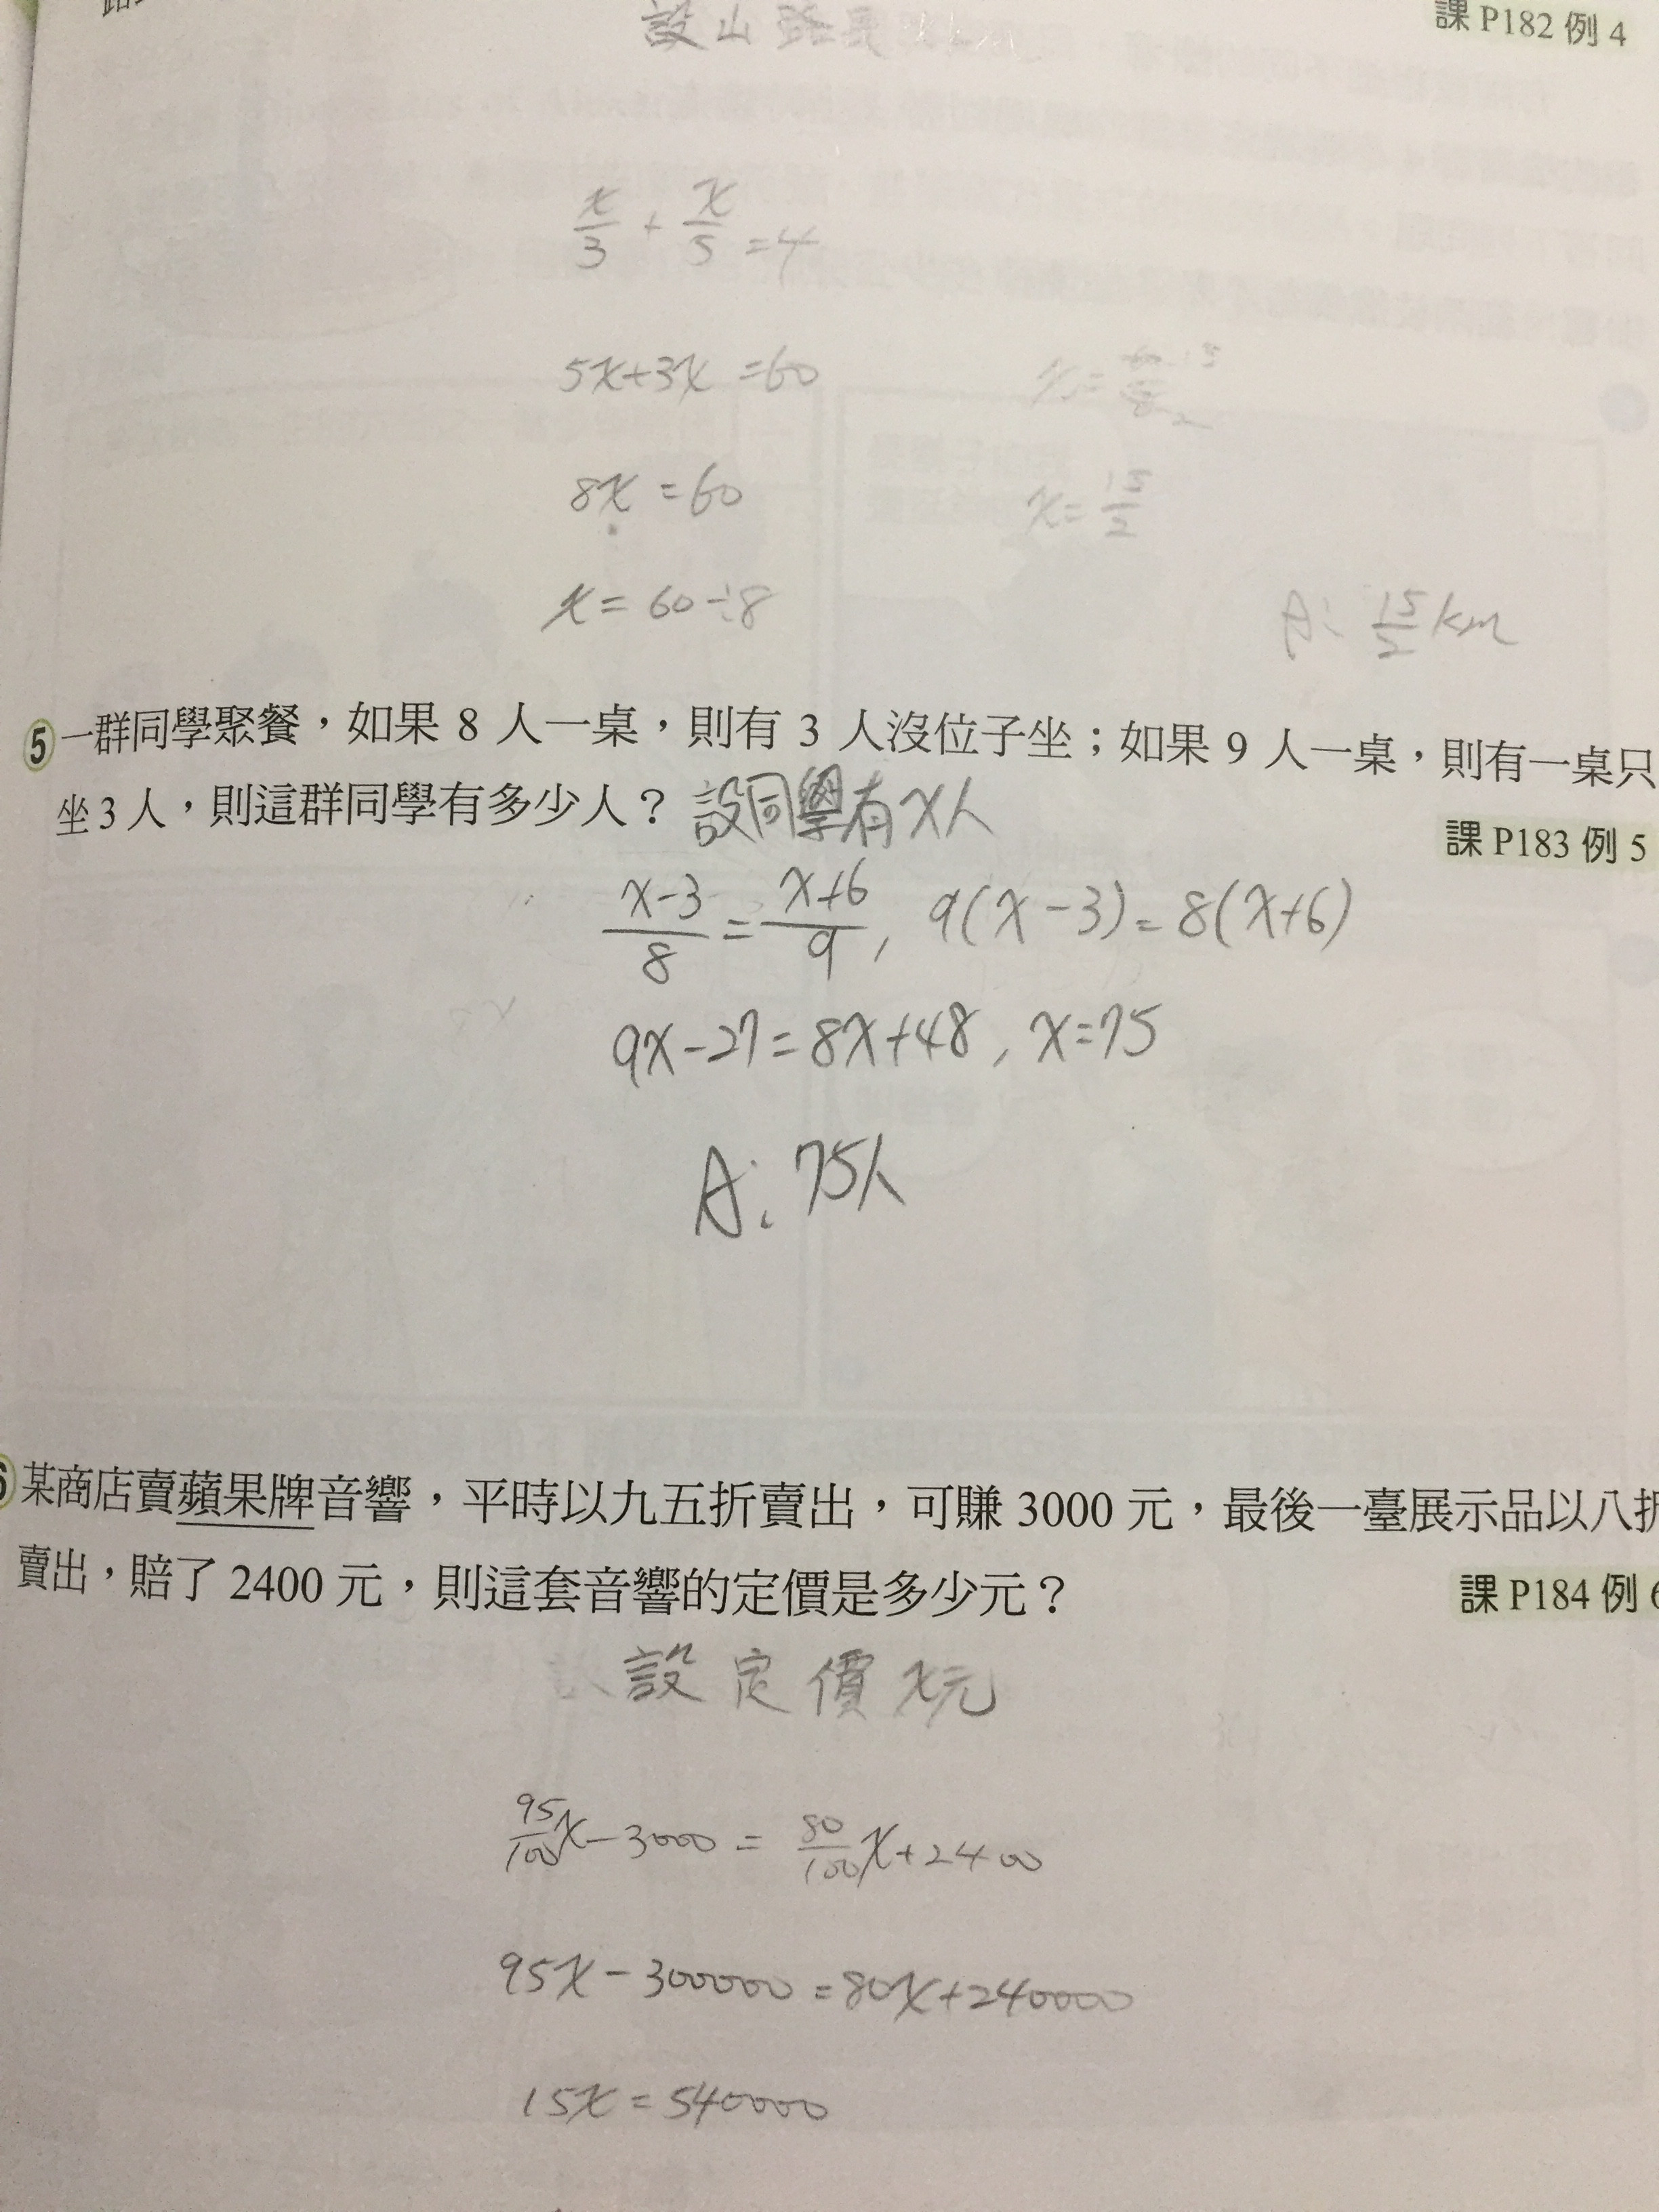 課 P182 例 4
設山路長
x/3 + x/5 = 4
5x+3x =60
8x =60
x= 60÷8
x= 60 15 / 8 2
x= 15/2
A: 15/2 km
5 一群同學聚餐，如果 8 人一桌，則有 3 人沒位子坐；如果 9 人一桌，則有一桌只
坐 3 人，則這群同學有多少人？ 設同學有 x人
課 P183 例 5
x-3/8 = x+6/9 , 9(x-3)=8(x+6)
9x-27=8x+48, x=75
A: 75人
6 某商店賣蘋果牌音響，平時以九五折賣出，可賺 3000 元，最後一臺展示品以八折
賣出，賠了 2400 元，則這套音響的定價是多少元？
課 P184 例 6
設定價 x元
95/100 x-3000 = 80/100 x+2400
95x-300000 =80x+240000
15x=540000